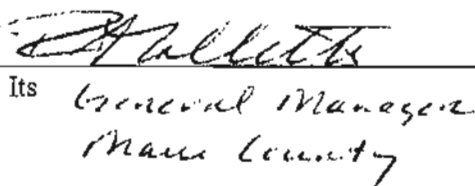 Its General Manager
Maui County